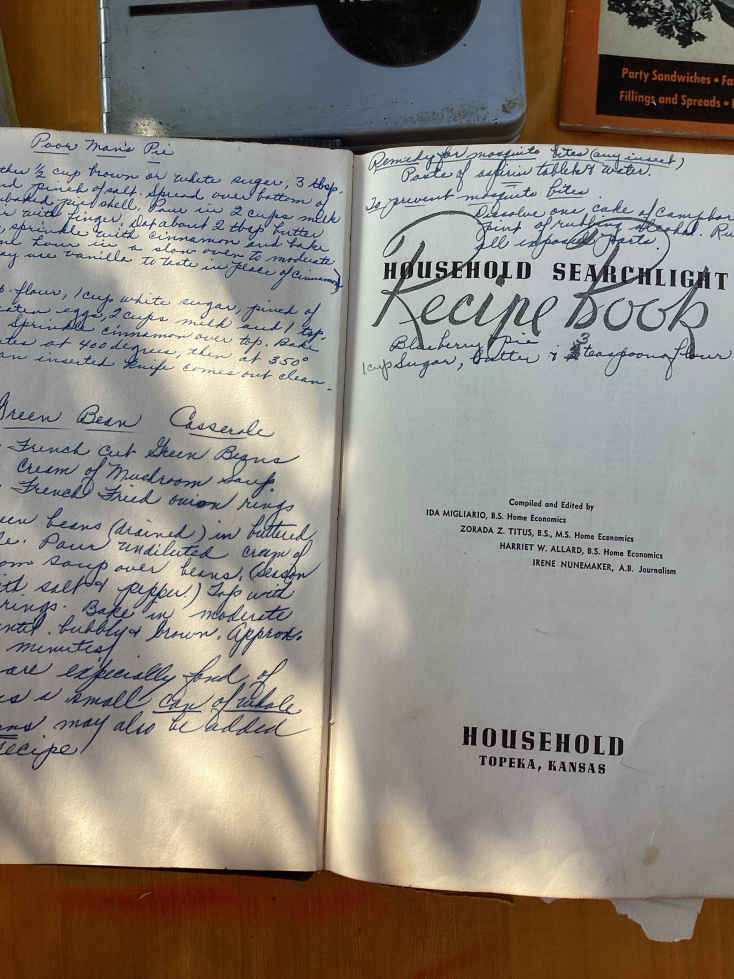 Party Sandwiches • Fa
Fillings and Spreads •
Poor Man's Pie
ther ½ cup brown or white sugar, 3 tbsp.
nd pinch of salt. Spread over bottom of
baked pie shell. Pour in 2 cups milk
with finger. Dot about 2 tbsp butter
, sprinkle with cinnamon and bake
one hour in a slow oven to moderate
ay use vanilla to taste in place of cinnamon)
flour, 1 cup white sugar, pinch of
eaten eggs, 2 cups milk and 1 tsp.
Sprinkle cinnamon over top. Bake
utes at 400 degrees, then at 350°
an inserted knife comes out clean.
Green Bean Casserole
French Cut Green Beans
Cream of Mushroom Soup.
French Fried onion rings
een beans (drained) in buttered
le. Pour undiluted cream of
oom soup over beans, (Season
ith salt & pepper.) Top with
rings. Bake in moderate
until bubbly & brown. Approx.
minutes)
are especially fond of
a small can of whole
may also be added
recipe
Remedy for mosquito bites (any insect)
Paste of asperin tablet & water.
To prevent mosquito bites.
Dissolve one cake of camphor
pint of rubbing alcohol. Ru
all exposed parts.
HOUSEHOLD SEARCHLIGHT
Recipe Book
Blueberry Pie
1 cup Sugar, butter & 3 teaspoons flour
Compiled and Edited by
IDA MIGLIARIO, B.S. Home Economics
ZORADA Z. TITUS, B.S., M.S. Home Economics
HARRIET W. ALLARD, B.S. Home Economics
IRENE NUNEMAKER, A.B. Journalism
HOUSEHOLD
TOPEKA, KANSAS